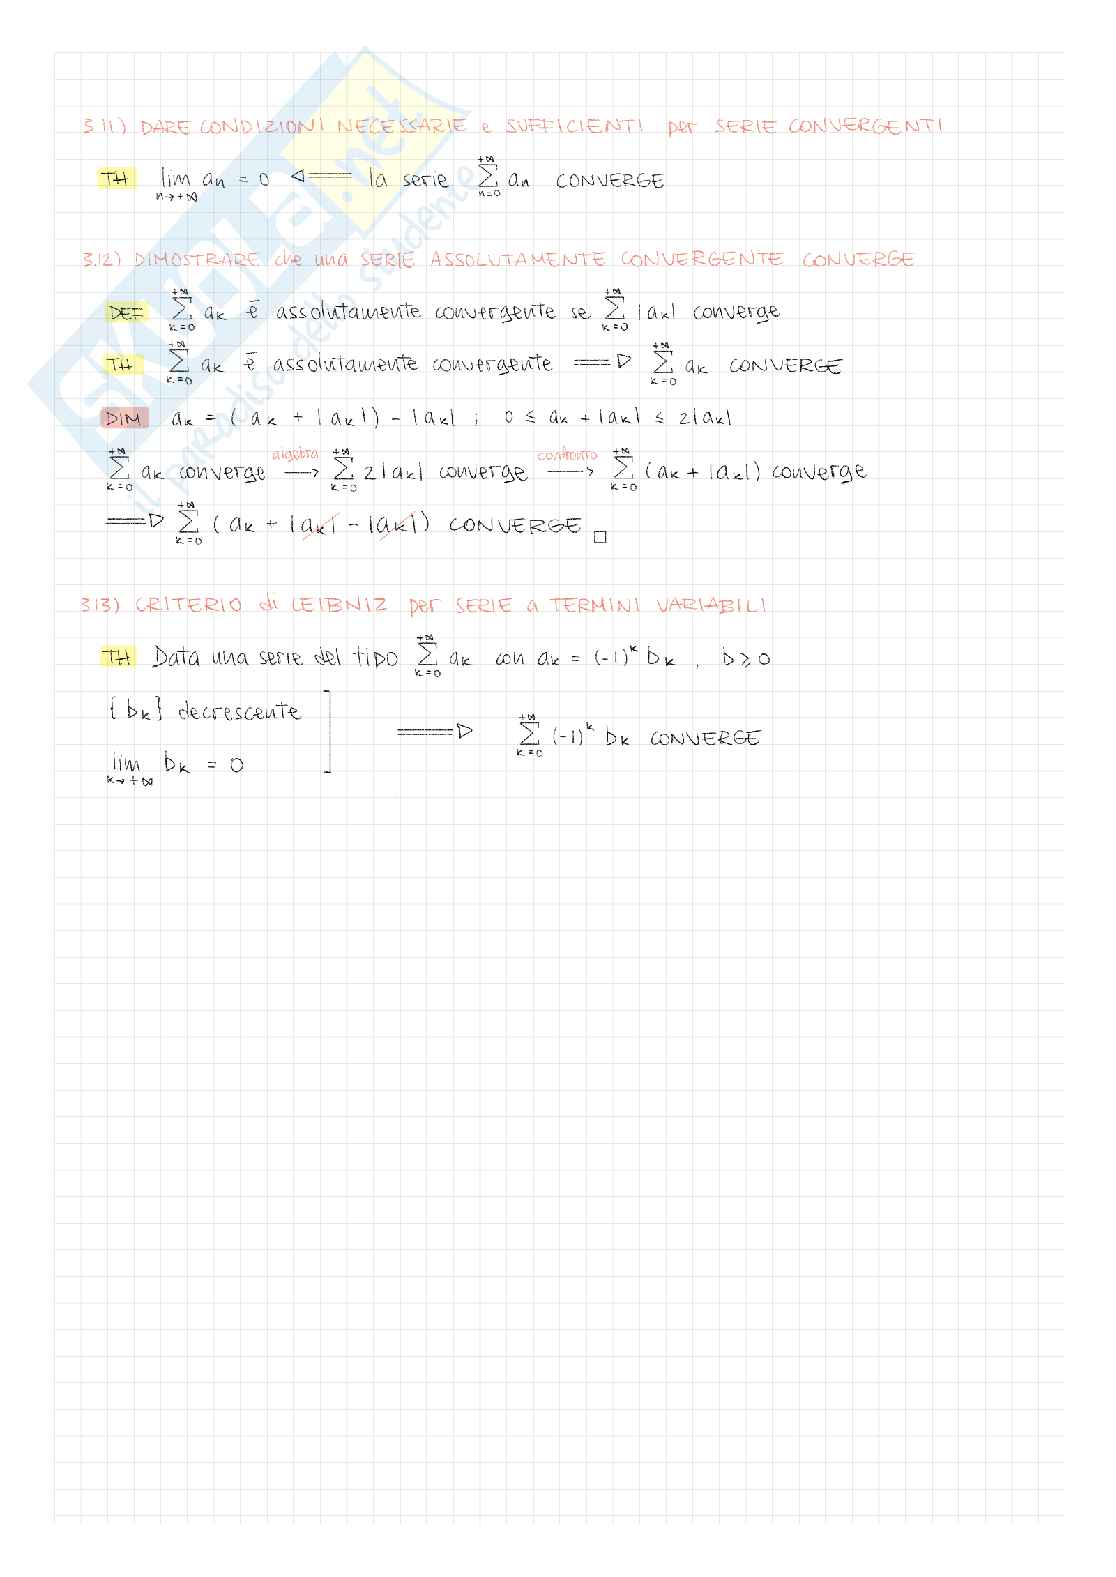 3.11) DARE CONDIZIONI NECESSARIE e SUFFICIENTI per SERIE CONVERGENTI
TH lim n→+∞ an = 0 ⇐ la serie +∞ Σ n=0 an CONVERGE
3.12) DIMOSTRARE che una SERIE ASSOLUTAMENTE CONVERGENTE CONVERGE
DEF +∞ Σ k=0 ak è assolutamente convergente se +∞ Σ k=0 |ak| converge
TH +∞ Σ k=0 ak è assolutamente convergente ⇒ +∞ Σ k=0 ak CONVERGE
DIM ak = (ak + |ak|) - |ak| ; 0 ≤ ak + |ak| ≤ 2|ak|
+∞ Σ k=0 ak converge algebra → +∞ Σ k=0 2|ak| converge confronto → +∞ Σ k=0 (ak + |ak|) converge
⇒ +∞ Σ k=0 (ak + |ak| - |ak|) CONVERGE □
3.13) CRITERIO di LEIBNIZ per SERIE a TERMINI VARIABILI
TH Data una serie del tipo +∞ Σ k=0 ak con ak = (-1)^k bk , b ≥ 0
{bk} decrescente
lim k→+∞ bk = 0 ] ⇒ +∞ Σ k=0 (-1)^k bk CONVERGE
SKUOLA.net
il paradiso dello studente